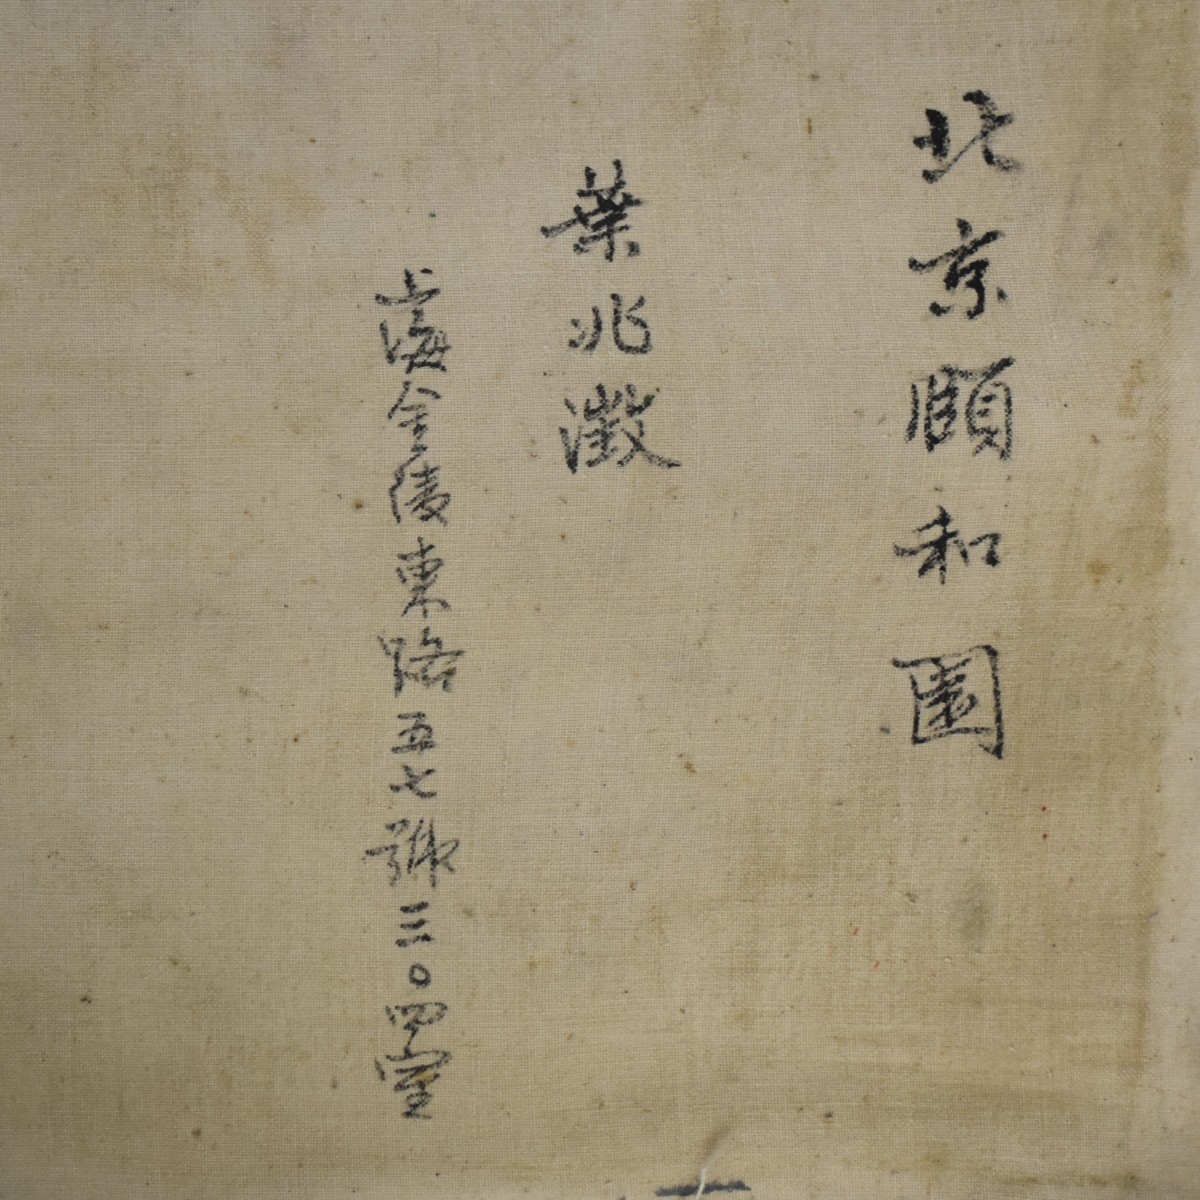 北京頤和園
葉兆澂
上海金陵東路五七號三〇四室